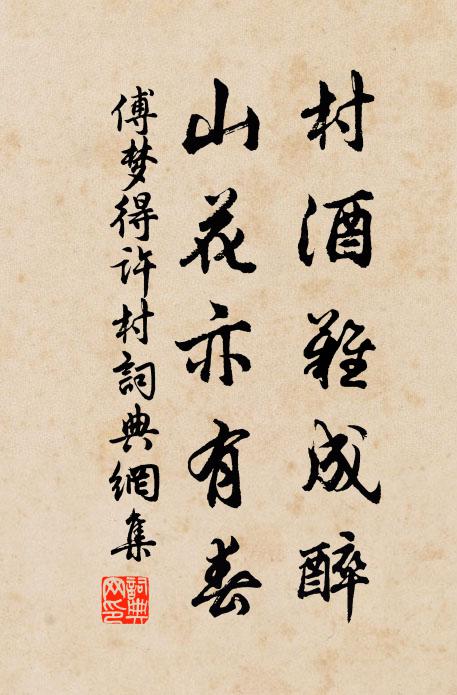 村酒难成醉
山花亦有春
傅梦得许村詞典網集
詞典网印